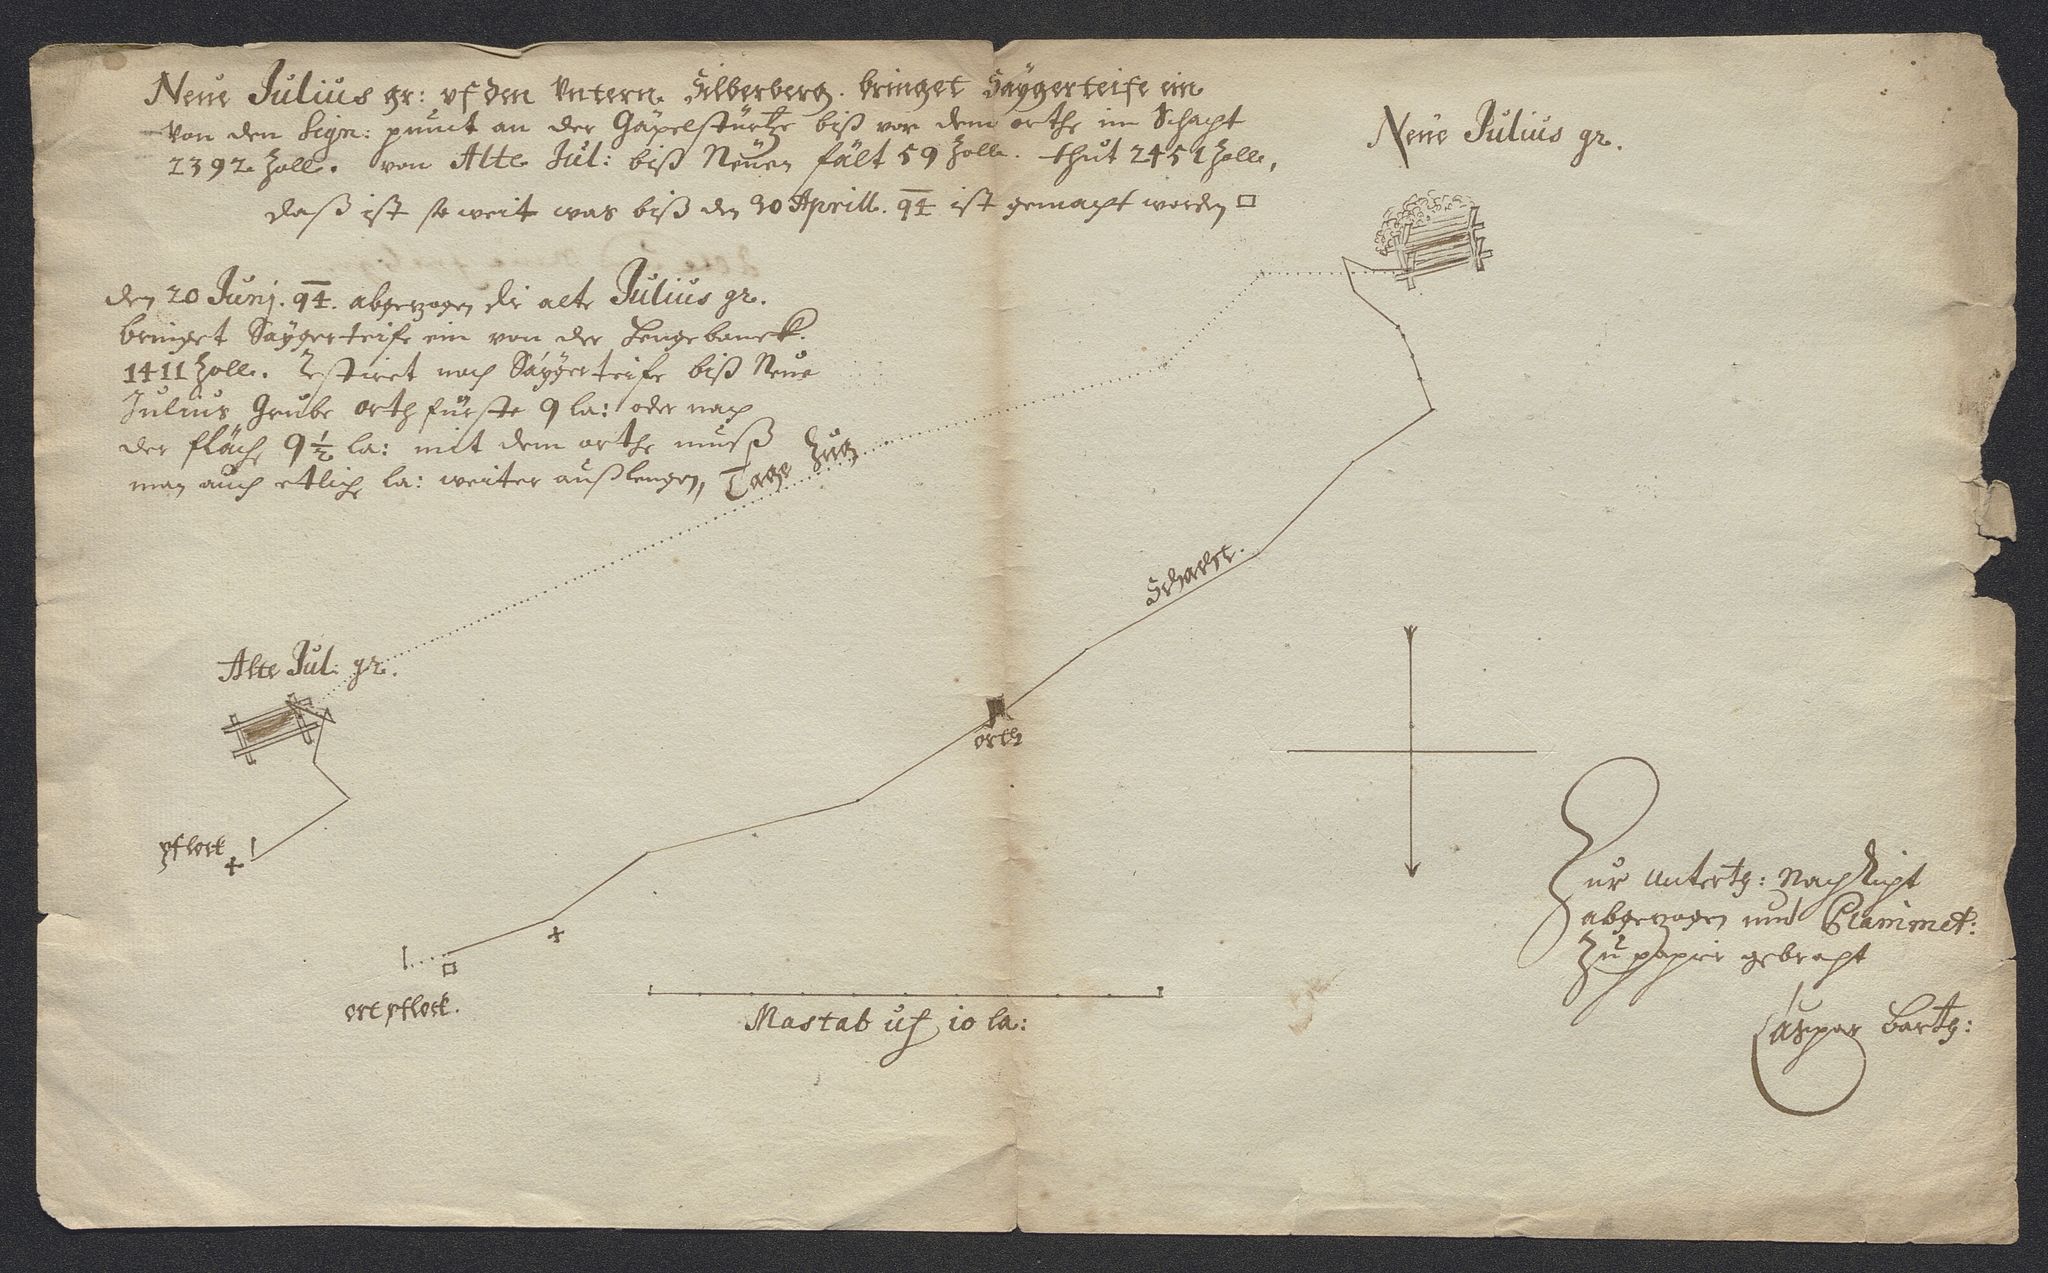 Neue Julius gr: vf den Vntern Silberberg. bringet Saÿgerteife ein
Von den Sign: punct an der Gäpelstürtze biß vor dem orthe im Schacht
2392 Zolle. von Alte Jul: biß Neüen fält 59 Zolle. thut 2451 Zolle,
daß ist so weit was biß den 20 Aprill. 94 ist gemacht worden □
Neue Julius gr.
den 20 Junj. 94. abgezogen die alte Julius gr.
bringet Saÿgerteife ein von der Hengebanck.
1411 Zolle. Restiret noch Saÿgerteife biß Neue
Julius Grube orth fürste 9 la: oder nach
der fläche 9½ la: mit dem orthe muß
man auch etliche la: weiter außlengen,
Tage Zug
Schacht.
Alte Jul: gr.
orth
pflock
ort pflock.
Mastab uf 10 la:
Zur Unterth: Nachricht
abgezogen und
Zu papier gebracht
Caspar Barth: